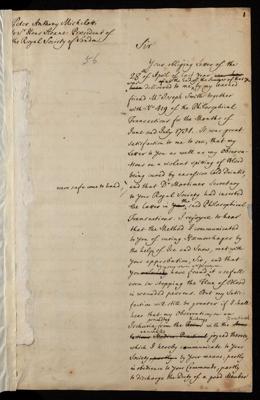 1
Peter Anthony Michelotti
to Sr. Hans Sloane President of
the Royal Society of London
56
Sir
Your obliging Letter of the
28th of April of last Year
was delivered to me by my learned
friend Mr. Joseph Smith together
with No. 419 of the Philosophical
Transactions for the Months of
June and July 1731. It was great
satisfaction to me to see, that my
Letter to You as well as my Observa-
tions on a violent spitting of Blood
being cured by excessive cold drinks,
came safe to hand,
and that Dr. Mortimer Secretary
to Your Royal Society had inserted
the Latter in the said Philosophical
Transactions. I rejoyce to hear
that the Method I communicated
to You of curing Hæmorrhages by
the help of Ice and Snow, met with
Your approbation, Sir, and that
You have found it usefull
even in stopping the Flux of Blood
in wounded persons. But my Satis-
faction will still be greater if I shall
hear that my Observation on an
with the
joyned thereto,
which I hereby communicate to Your
Society by Your means, partly
in obedience to Your Commands, partly
to discharge the Duty of a good Member